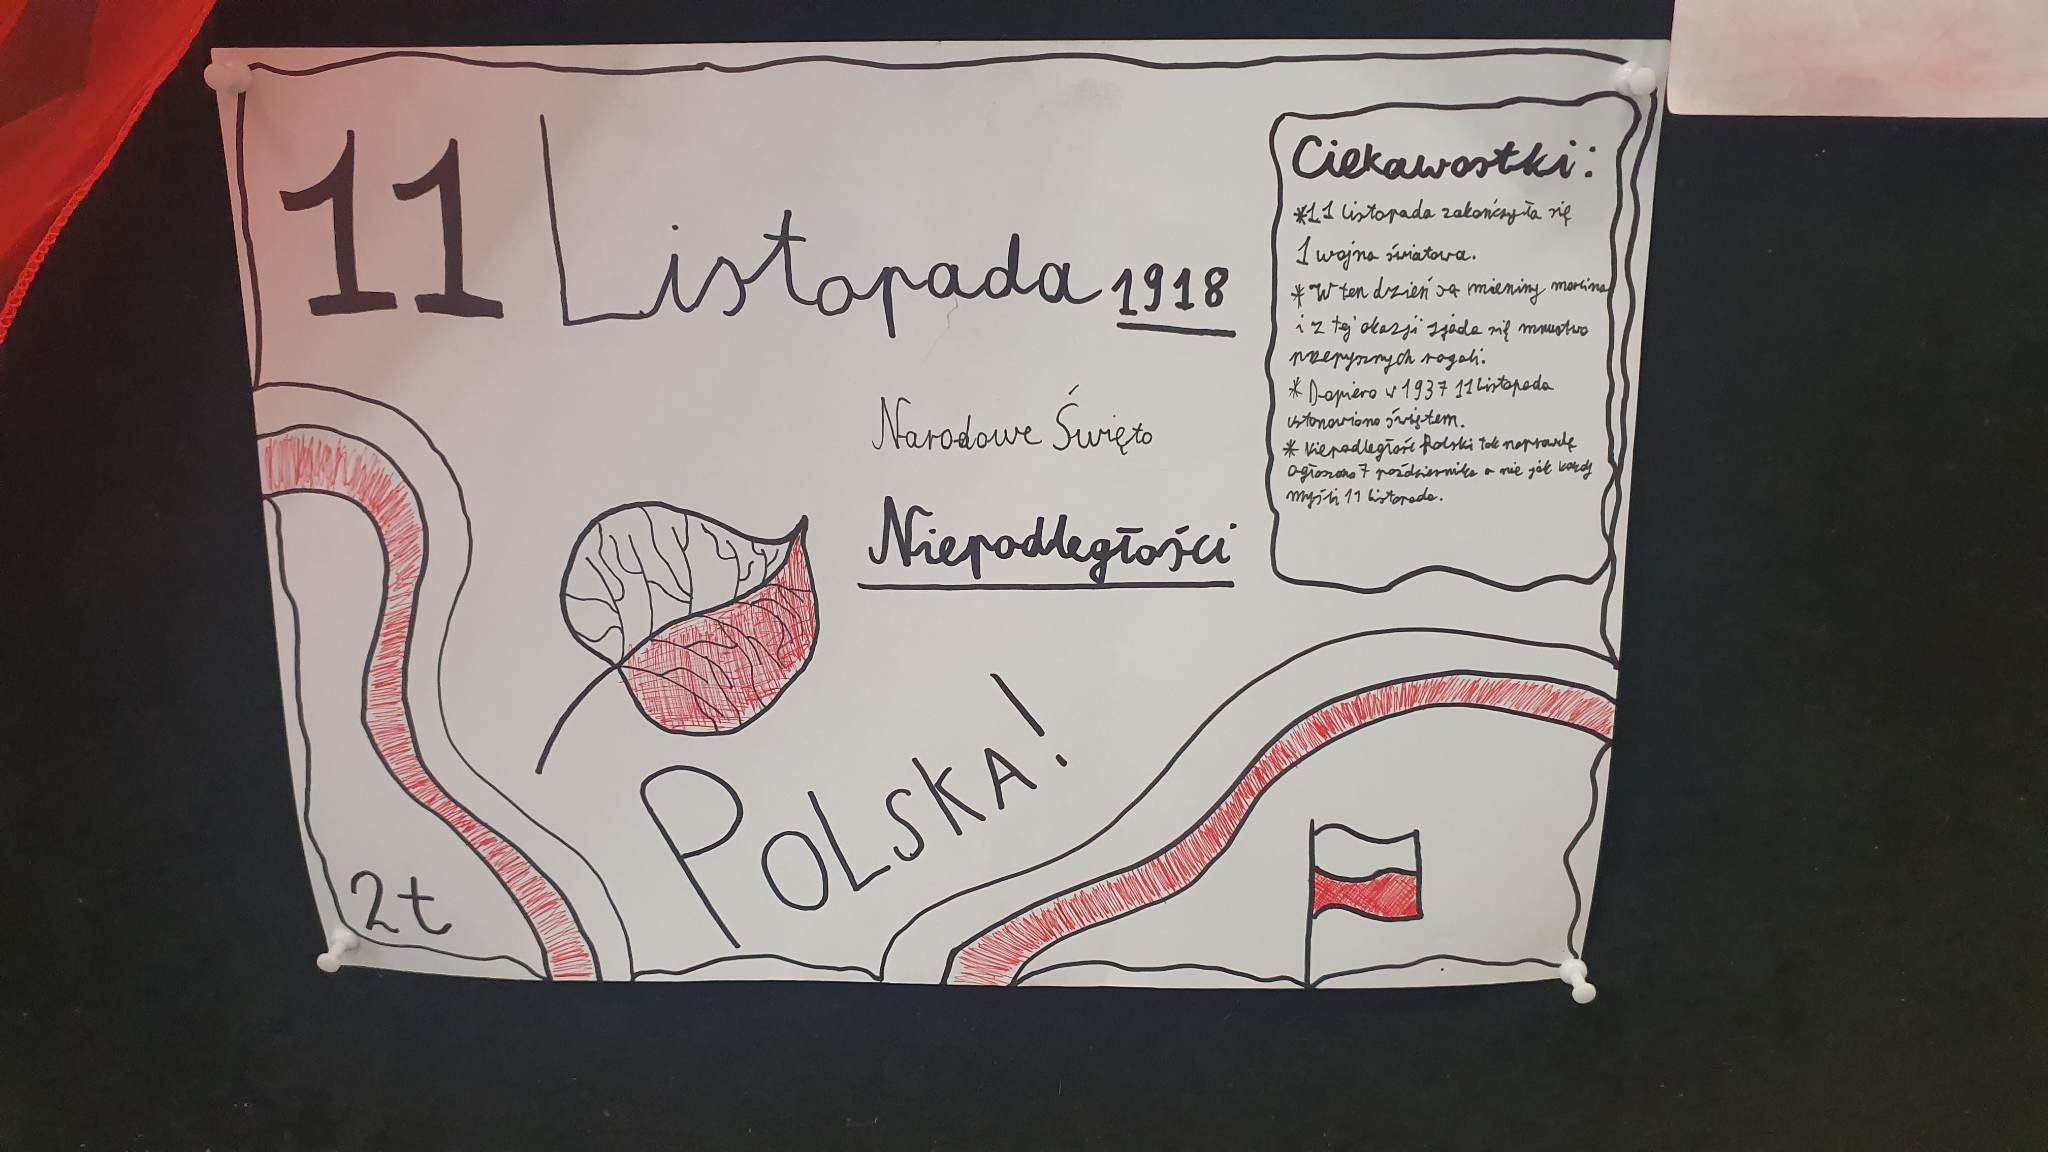 11 Listopada 1918
Narodowe Święto
Niepodległości
POLSKA!
2t
Ciekawostki:
*11 listopada zakończyła się
1 wojna światowa.
* W ten dzień są imieniny marcina
i z tej okazji zjada się mnustwo
przepysznych rogali.
* Dopiero w 1937 11 Listopada
ustanowiono świętem.
* Niepodległość Polski tak naprawdę
ogłoszono 7 października a nie jak każdy
myśli 11 listopada.